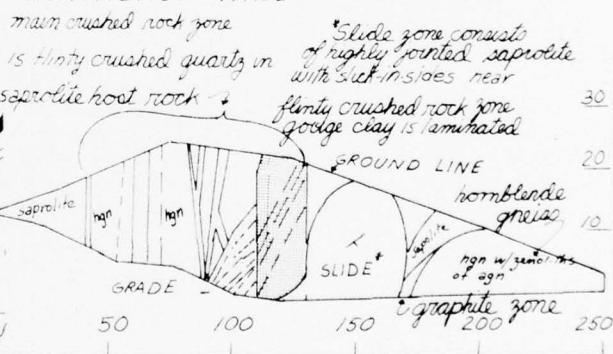 main crushed rock zone
is flinty crushed quartz in
saprolite host rock
*Slide zone consists
of highly jointed saprolite
with slick-in-sides near
flinty crushed rock zone
gouge clay is laminated
30
20
GROUND LINE
hornblende
gneiss
10
saprolite
hgn
hgn
SLIDE*
saprolite
hgn w/ zenoliths
of agn
GRADE
graphite zone
50
100
150
200
250